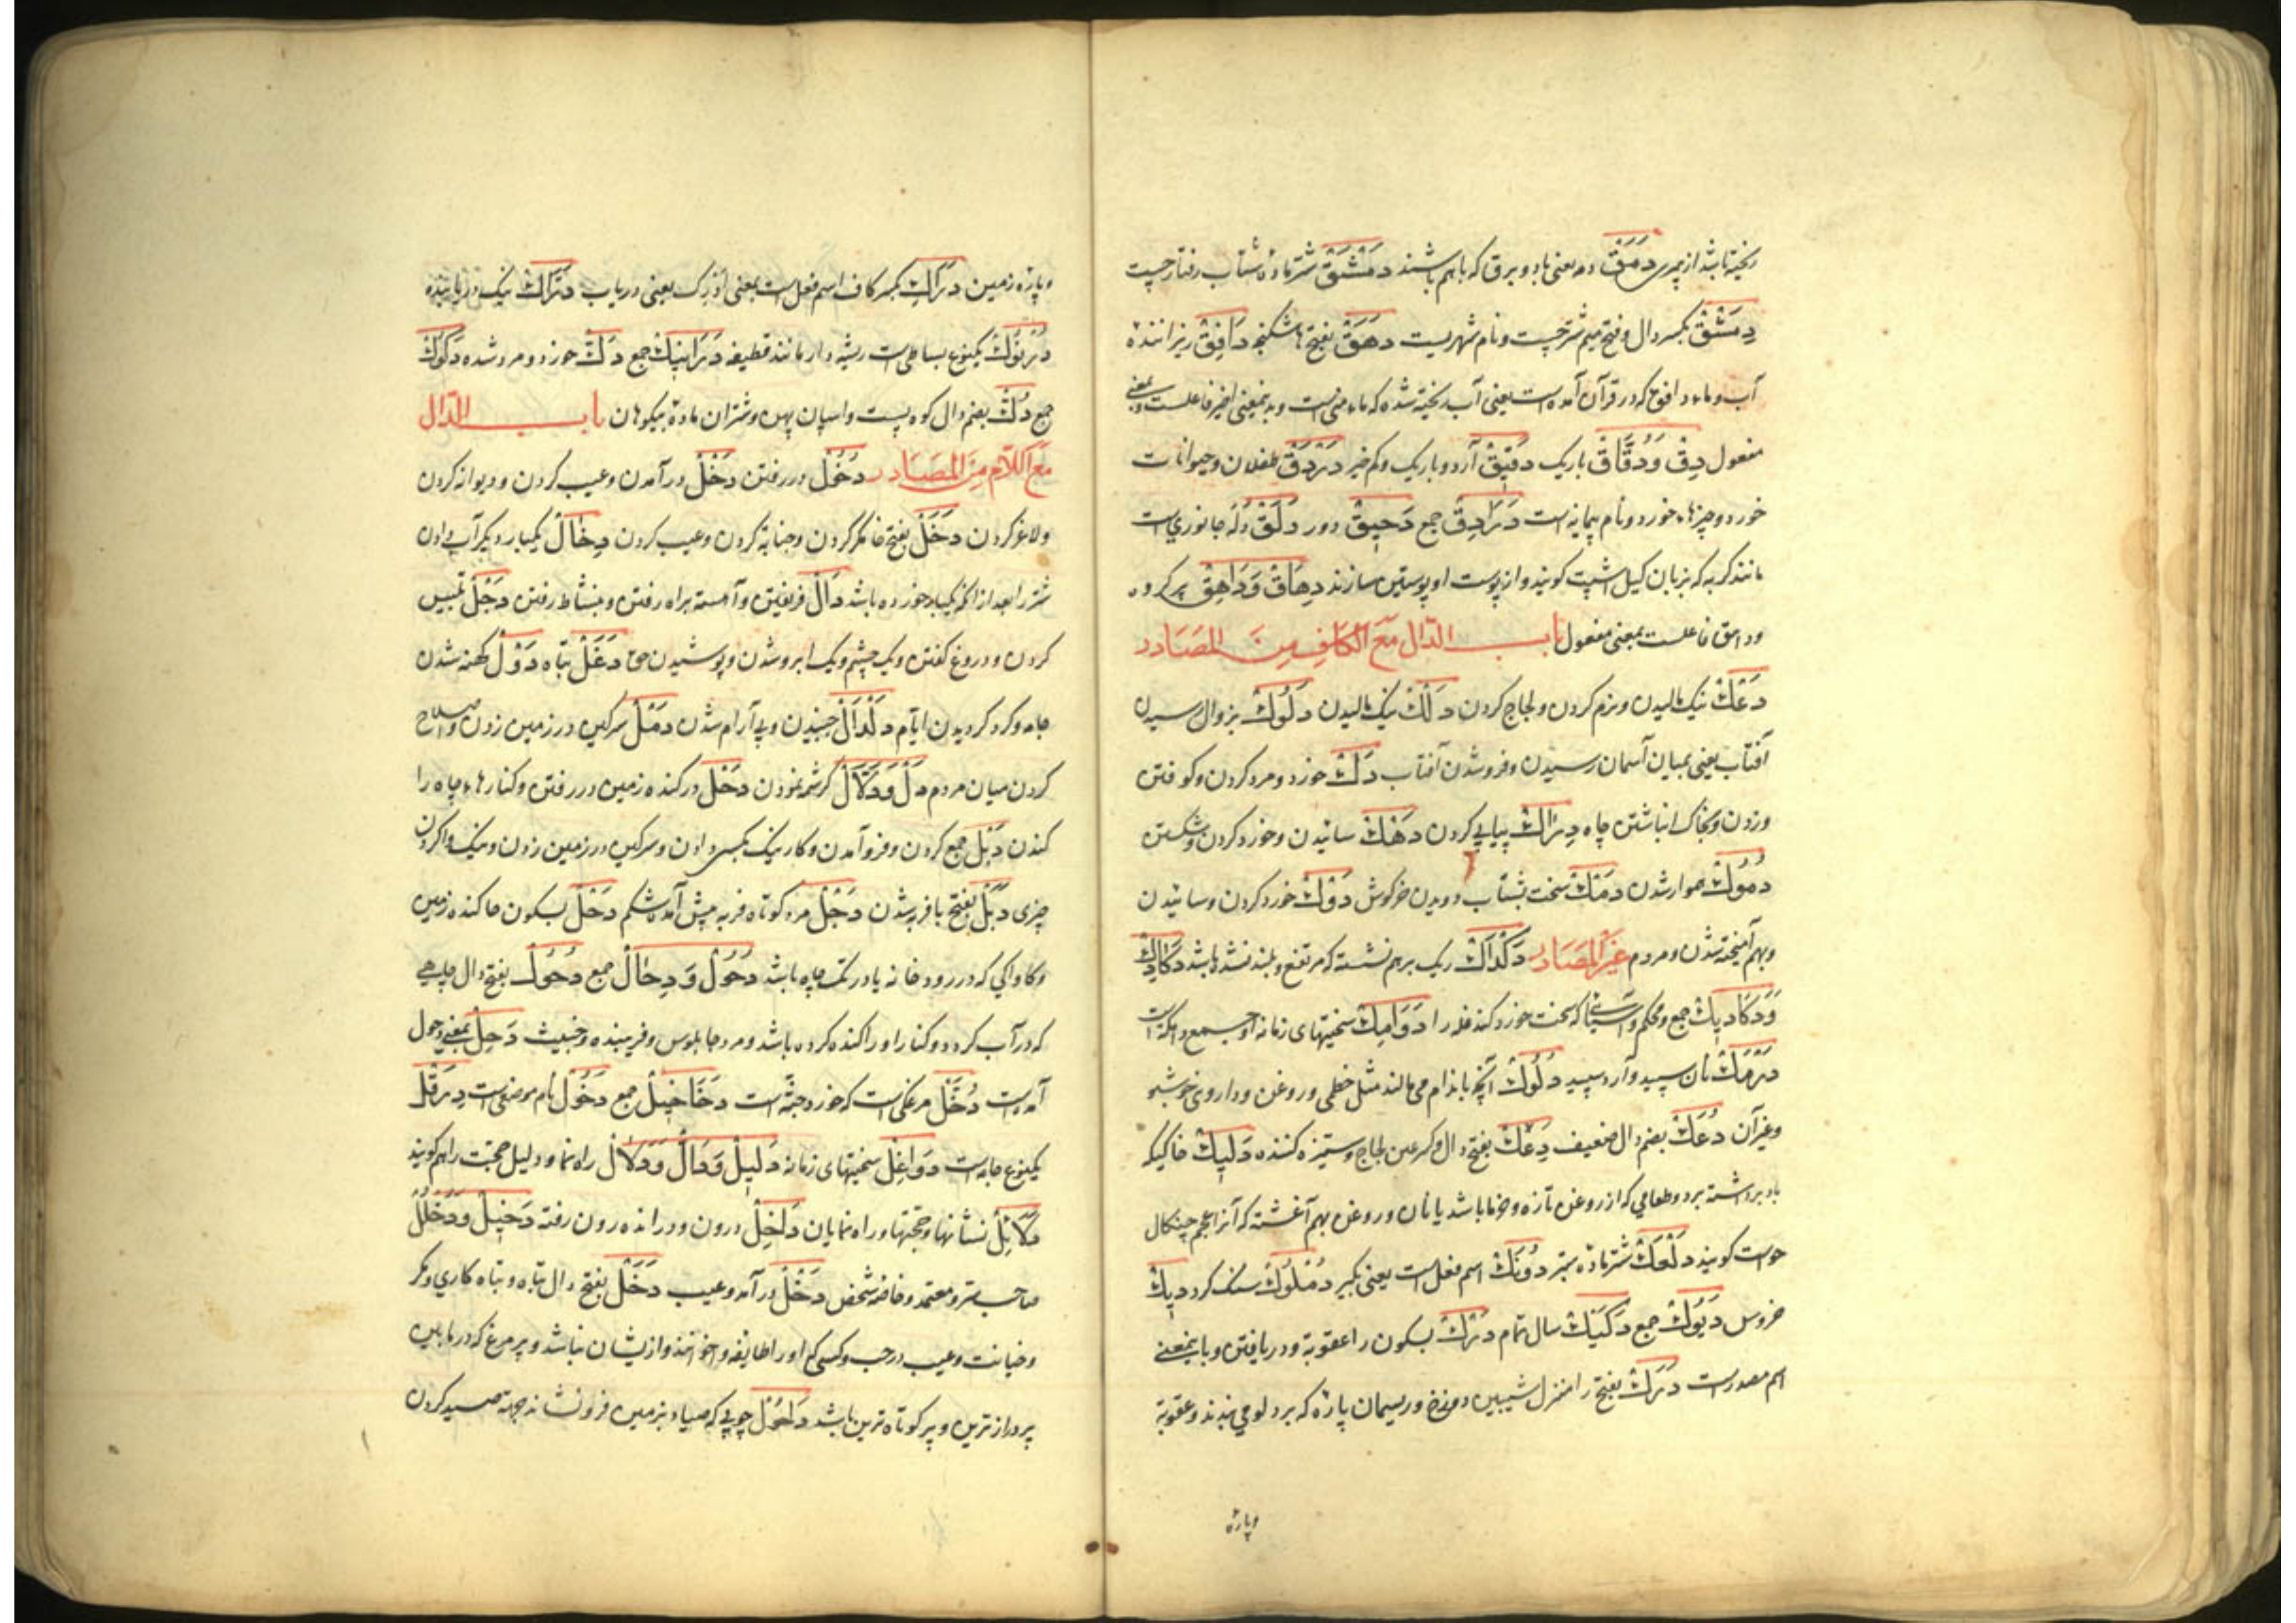 ریخته باشد از پری دَمَقْ دمه یعنی باد و برق که باهم باشند دَمْشَقْ شتر ماده شتاب رفتار چست
دِمَشْقْ بکسر دال و فتح میم شتر چست و نام شهریست دَهَقْ بفتح ها شکنجه دَافِقْ ریزاننده
آب و ماء دافق که در قرآن آمده است یعنی آب ریخته شده که ماء منی است و بدینمعنی اخیر فاعلست بمعنی
مفعول دِقْ وَدُقَاقْ باریک دَقِیقْ آرد و باریک و کم خیر دَرْدَقْ طفلان و حیوانات
خورد و چیزهاء خورد و نام پیمانه است دَرَادِقْ جمع دَحِیقْ دور دَلَقْ دله جانوری است
مانند گربه که بزبان کیل اشپت گویند و از پوست او پوستین سازند دِهَاقْ وَدَاهِقْ پر کرده
وداهق فاعلست بمعنی مفعول باب الدّال مَعَ الکَافِ مِنَ المَصَادر
دَعْكْ نیک مالیدن و نرم کردن و لجاج کردن دَلْكْ نیک مالیدن دُلُوكْ بزوال رسیدن
آفتاب یعنی بمیان آسمان رسیدن و فرو شدن آفتاب دَكْ خورد و مرد کردن و کوفتن
وزدن و بخاک انباشتن چاه دِرَاكْ پیاپی کردن دَهْكْ سائیدن و خورد کردن و شکستن
دُمُوكْ هموار شدن دَمْكْ سخت بشتاب دویدن خرگوش دَوْكْ خورد کردن و سائیدن
و بهم آمیخته شدن و مردم غَیْرِ المَصَادر دَكْدَاكْ ریک برهم نشسته که مرتفع و بلند نشده باشد دَكَادِكْ
وَدَكَادِیكْ جمع و محکم و آسیائی که سخت خورد کند غله را دَوَامِكْ سختیهای زمانه او جمع دامکه است
دَرْمَكْ نان سپید و آرد سپید دَلُوكْ آنچه باندام می مالند مثل خطمی و روغن و داروی خوشبو
و غیر آن دُعَكْ بضم دال ضعیف دَعِكْ بفتح دال و کسر عین لجاج و ستیزه کننده دَلِیكْ خاکیکه
باد برداشته برد و طعامی که از روغن تازه و خرما باشد یا نان و روغن بهم آغشته که آنرا عجم چنکال
خواست گویند دَلْعَكْ شتر ماده ستبر دُونَكْ اسم فعل است یعنی بگیر دُمْلُوكْ سنک گرد دِیكْ
خروس دُیُوكْ جمع دَكِیكْ سال تمام دَرْكْ بسکون را عقوبة و دریافتن و باینمعنی
اسم مصدرست دَرَكْ بفتح را منزل شیبین دوزخ و ریسمان پاره که بر دلو می بندند و عقوبة
وپاره
وپاره زمین دَرَاكِ بکسر کاف اسم فعل است بمعنی اَدْرِك یعنی دریاب دَرَّاكْ نیک دریابنده
دُرْنُوكْ یکنوع بساطی است ریشه دار مانند قطیفه دَرَانِیكْ جمع دَكْ خورد و مرد شده دُكُوكْ
جمع دُكْ بضم دال کوه پست و اسپان پهن و شتران ماده بیکوهان باب الدّال
مَعَ اللّام مِنَ المَصَادر دُخُلْ دررفتن دَخْلْ درآمدن و عیب کردن و دیوانه کردن
و لاغر کردن دَخَلْ بفتح خا مکر کردن و خیانة کردن و عیب کردن دِخَالْ یکبار دیگر آب دادن
شتر را بعد از آنکه یکبار خورده باشد دَالْ فریفتن و آهسته براه رفتن و بنشاط رفتن دَجْلْ تلبیس
کردن و دروغ گفتن و یک چشم و یک ابرو شدن و پوشیدن حق دَغَلْ تباه دَوْلْ کهنه شدن
جامه و گرد گردیدن ایام دَلْدَالْ جنبیدن و بی آرام شدن دَمْلْ سرکین در زمین زدن و صلاح
کردن میان مردم دَلْ وَدَلَالْ کرشمه نمودن دَحْلْ در کنده زمین دررفتن و کنارهاء چاه را
کندن دَبْلْ جمع کردن و فرو آمدن و کار نیک بکسی دادن و سرکین در زمین زدن و نیک وا کردن
چیزی دَبَلْ بفتح با فربه شدن دَحِلْ مرد کوتاه فربه پیش آمده شکم دَحْلْ بسکون حا کنده زمین
و کاواکی که در رودخانه یا در تک چاه باشد دُحُولْ وَ دِحَالْ جمع دَحُولْ بفتح دال چاهی
که در آب کردد و کنار او را کنده کرده باشد و مرد چابلوس و فریبنده و خبیث دَحِلْ بمعنی دحول
آمده است دُخَّلْ مرغکی است که خورد جثه است دَخَاخِیلْ جمع دَخُولْ نام موضعی است دِرَقْلْ
یکنوع جامه است دَوَاغِلْ سختیهای زمانه دَلِیلْ وَدَالْ وَدَلَالْ راه نما و دلیل حجت را هم گویند
دَلَائِلْ نشانها و حجتها و راه نمایان دَاخِلْ درون و در انده رون رفته دَخِیلْ وَدُخْلُلْ
صاحب سر و معتمد و خاصه شخص دَخْلْ درآمد و عیب دَخَلْ بفتح دال تباه و تباه کاری و مکر
و خیانت و عیب در حسب و کسی که او را طایفه واخوانند و از یشان نباشد و پر مرغ که در میان
پر دراز ترین و پر کوتاه ترین باشد دَاحُولْ چوبی که صیاد بزمین فرونشاند جهة صید کردن